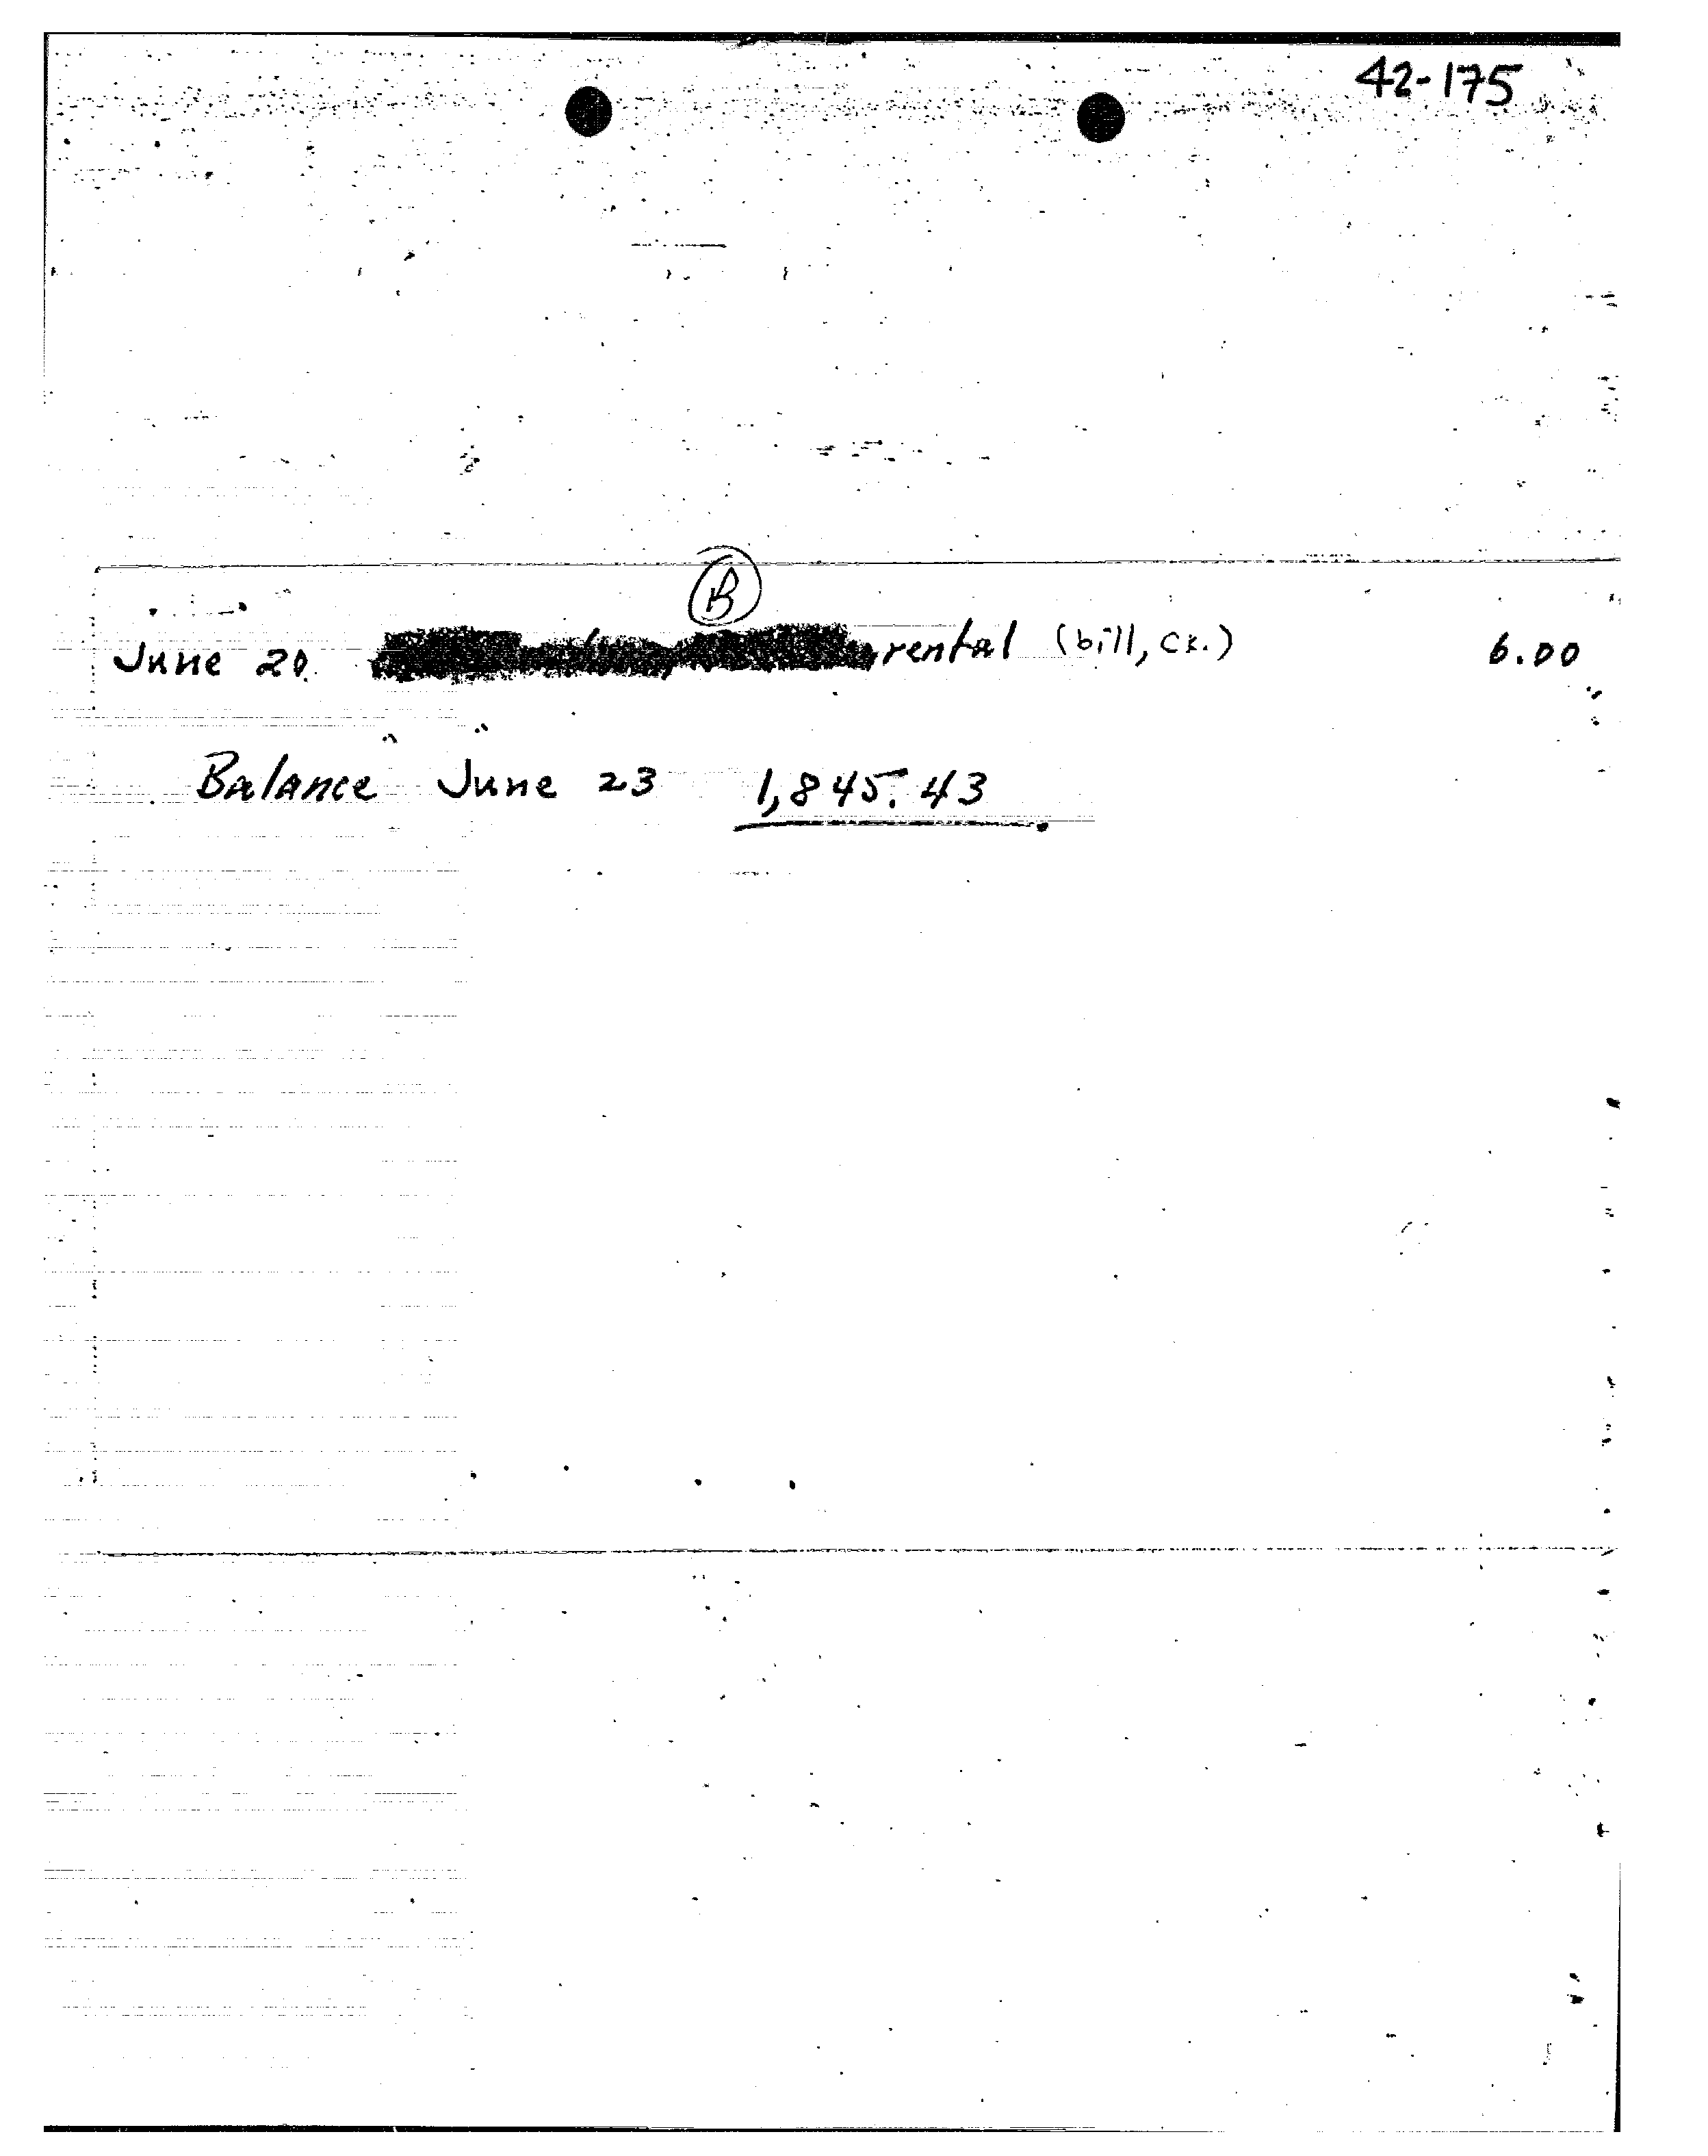 42-175
B
June 20 rental (bill, ck.) 6.00
Balance June 23 1,845.43